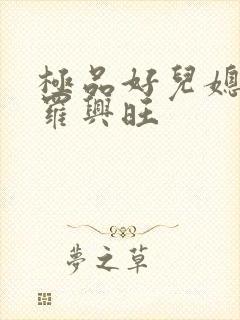 極品好兒媳
羅興旺
夢之草